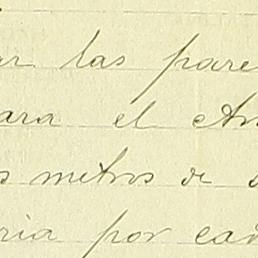 ar las pare
ara el An
s metros de s
ria por cad